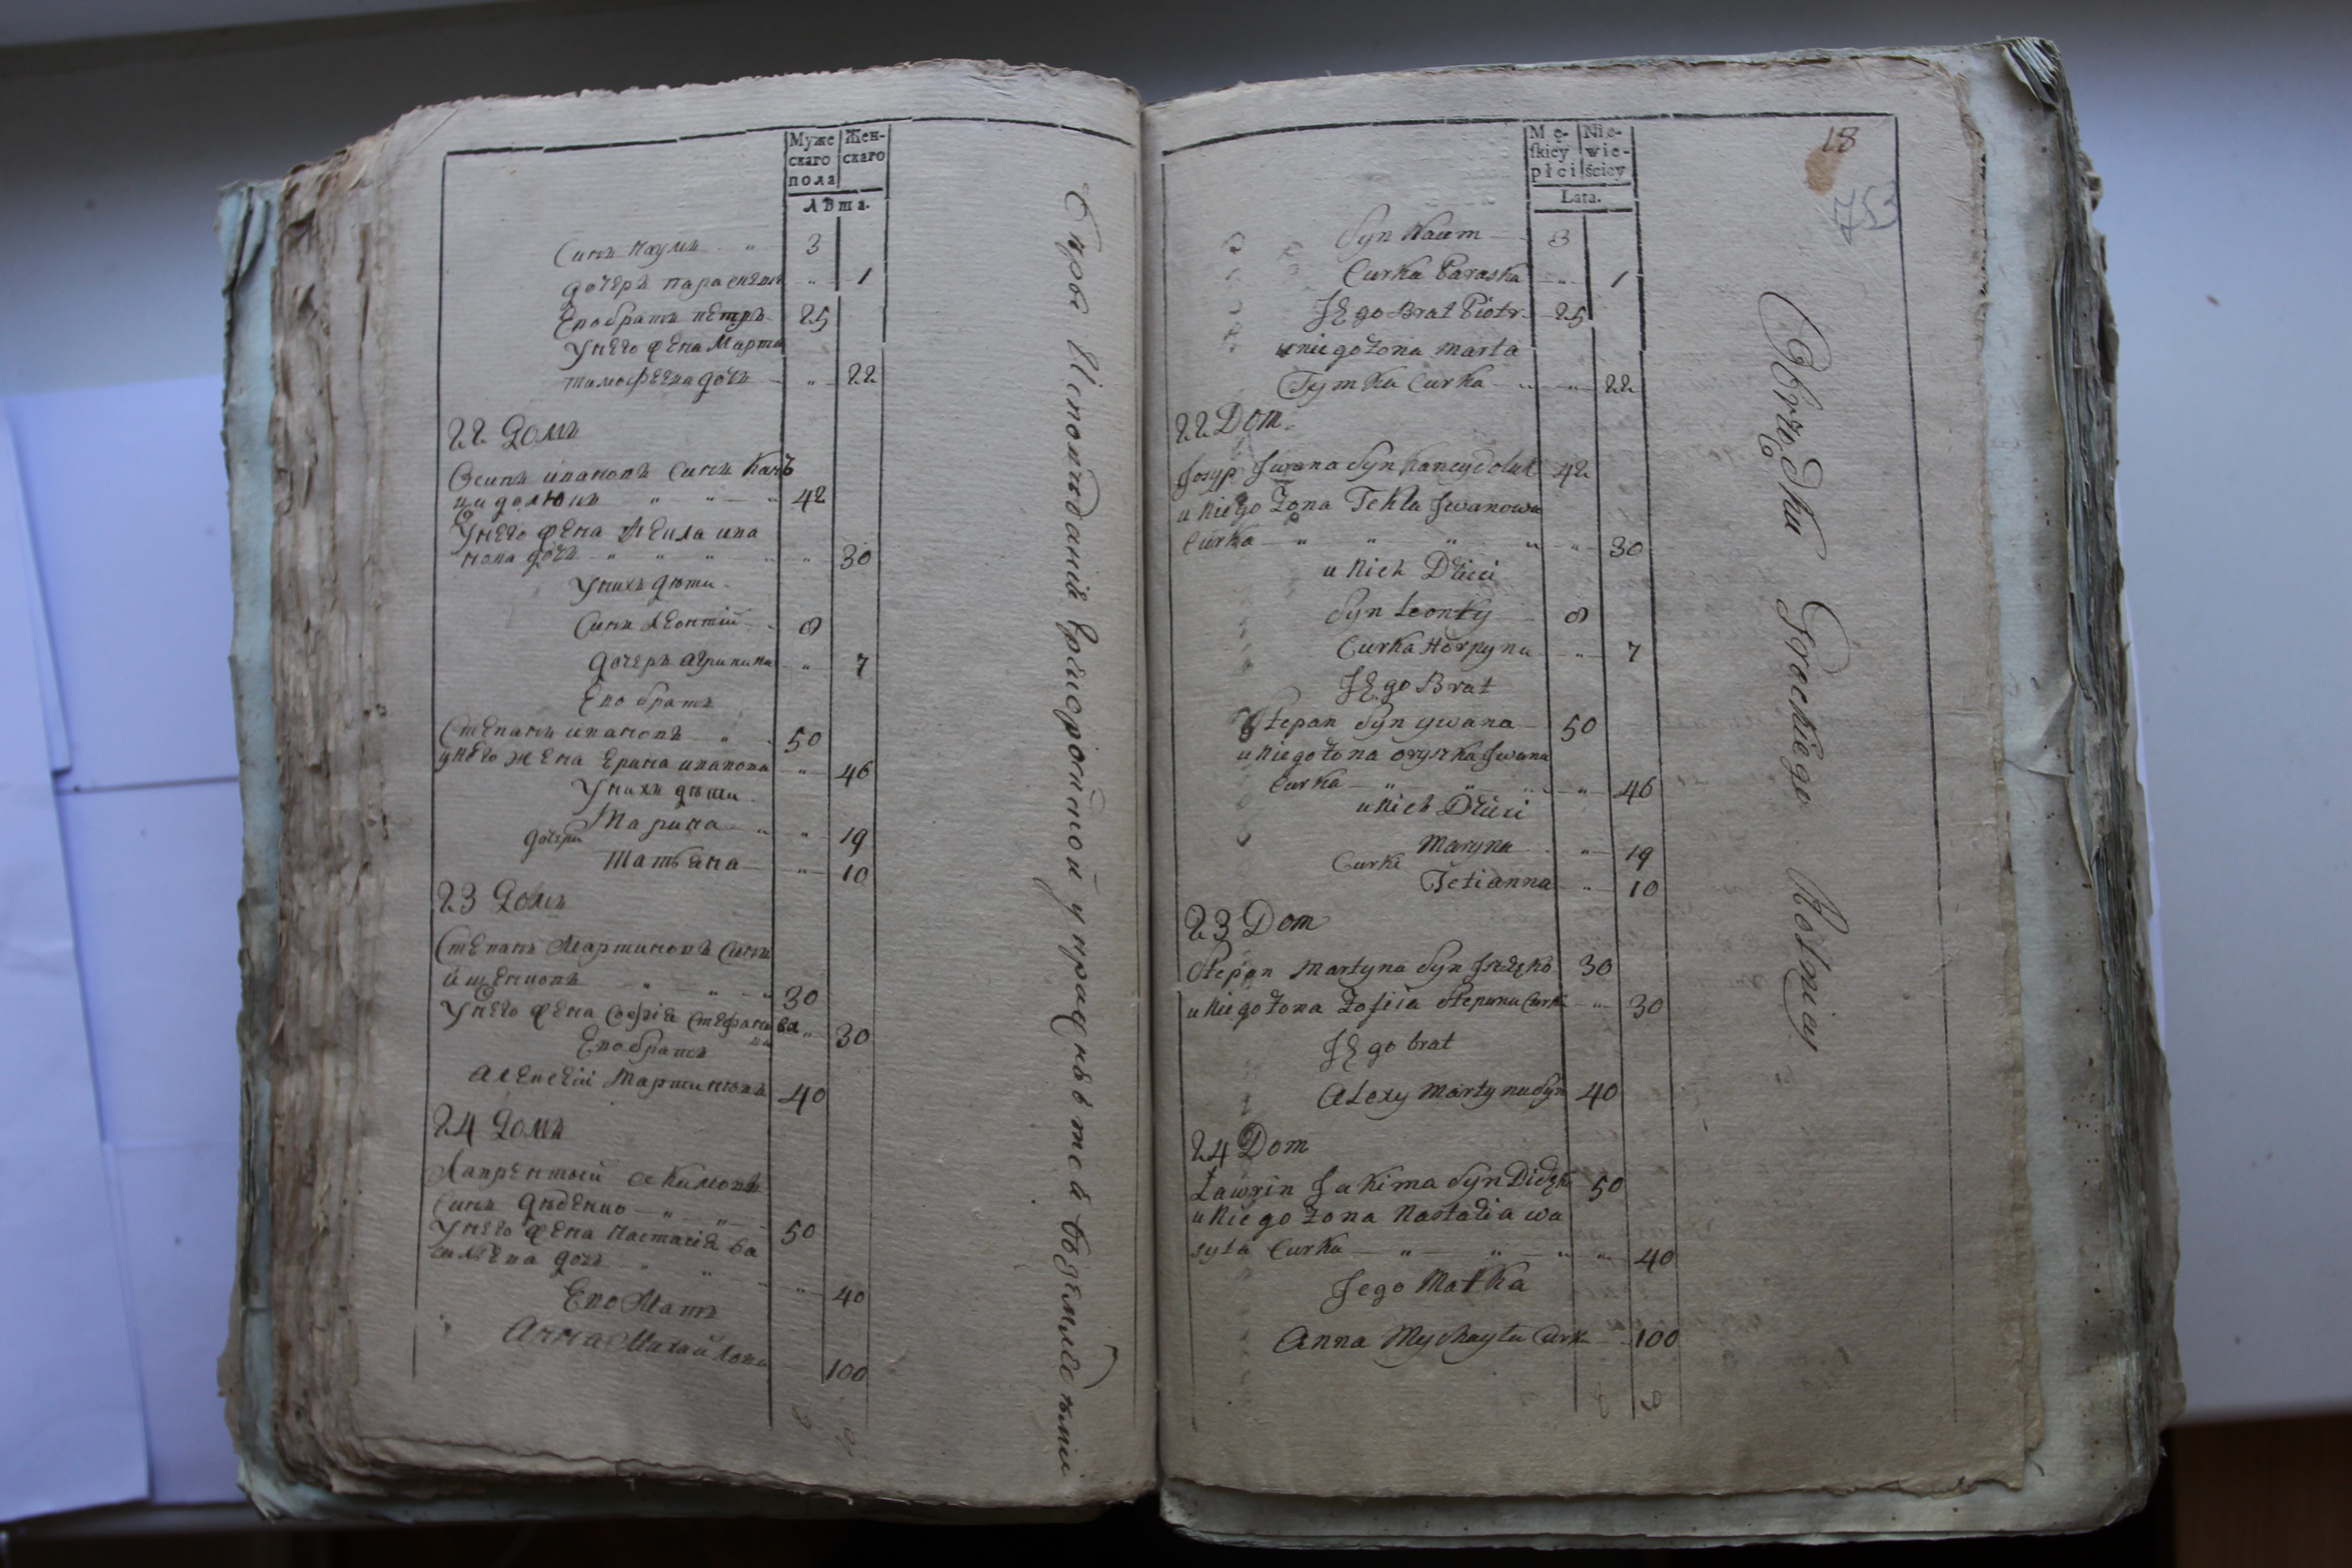 Муже Жен-
скаго скаго
пола
Лѣта.
Синъ Наумъ „ 3
дочеръ параскева „ 1
Его братъ петръ 25
У него жена Марта
тимофеева дочъ „ 22
22 Домъ
Осипъ ивановъ Синъ Кан
цидолюкъ „ „ „ 42
У него жена Текла ива
нова дочъ „ „ „ „ 30
У нихъ дѣти
Синъ Леонтий 8
дочеръ агрипина „ 7
Его братъ
Степанъ ивановъ „ 50
у него жена Ерина иванова „ 46
У нихъ дѣти
Марина „ „ 19
дочери
татьяна „ 10
23 Домъ
Степанъ Мартиновъ Синъ
„ „ „ 30
У него жена Софія Стефанова „ 30
Его братъ
Алексей Мартиновъ 40
24 Домъ
Лаврентий Акимовъ
Синъ дѣденко „ „ 50
У него жена Настасія ва
силѣва дочъ „ „ „ „ 40
Его Мать
Анна Михайлова 100
Mę- Nie-
skiey wie-
płci ściey
Lata.
18
753
Syn Naum 3
Curka Paraska „ 1
Jego Brat Piotr 25
u niego Żona Marta
Tymka Curka „ „ 22
22 Dom
Josyp Jwana Syn Kancydoluk 42
u Niego Żona Tekla Jwanowa
Curka „ „ „ „ „ 30
u Nich Dzieci
Syn Leonty 8
Curka Horpyna „ 7
Jego Brat
Stepan Syn ywana 50
u Niego Żona oryszka Jwana
Curka „ „ „ „ 46
u Nich Dzieci
Maryna „ 19
Curki
Tetianna „ 10
23 Dom
Stepan Martyna Syn 30
u Niego Żona Zofiia Stepana Curka „ 30
Jego brat
Alexy Martyna Syn 40
24 Dom
Ławrin Jakima Syn 50
u Niego Żona Nastazia wa
syla Curka „ „ „ „ 40
Jego Matka
Anna Mychayła Curka 100
Obrządku Greckiego